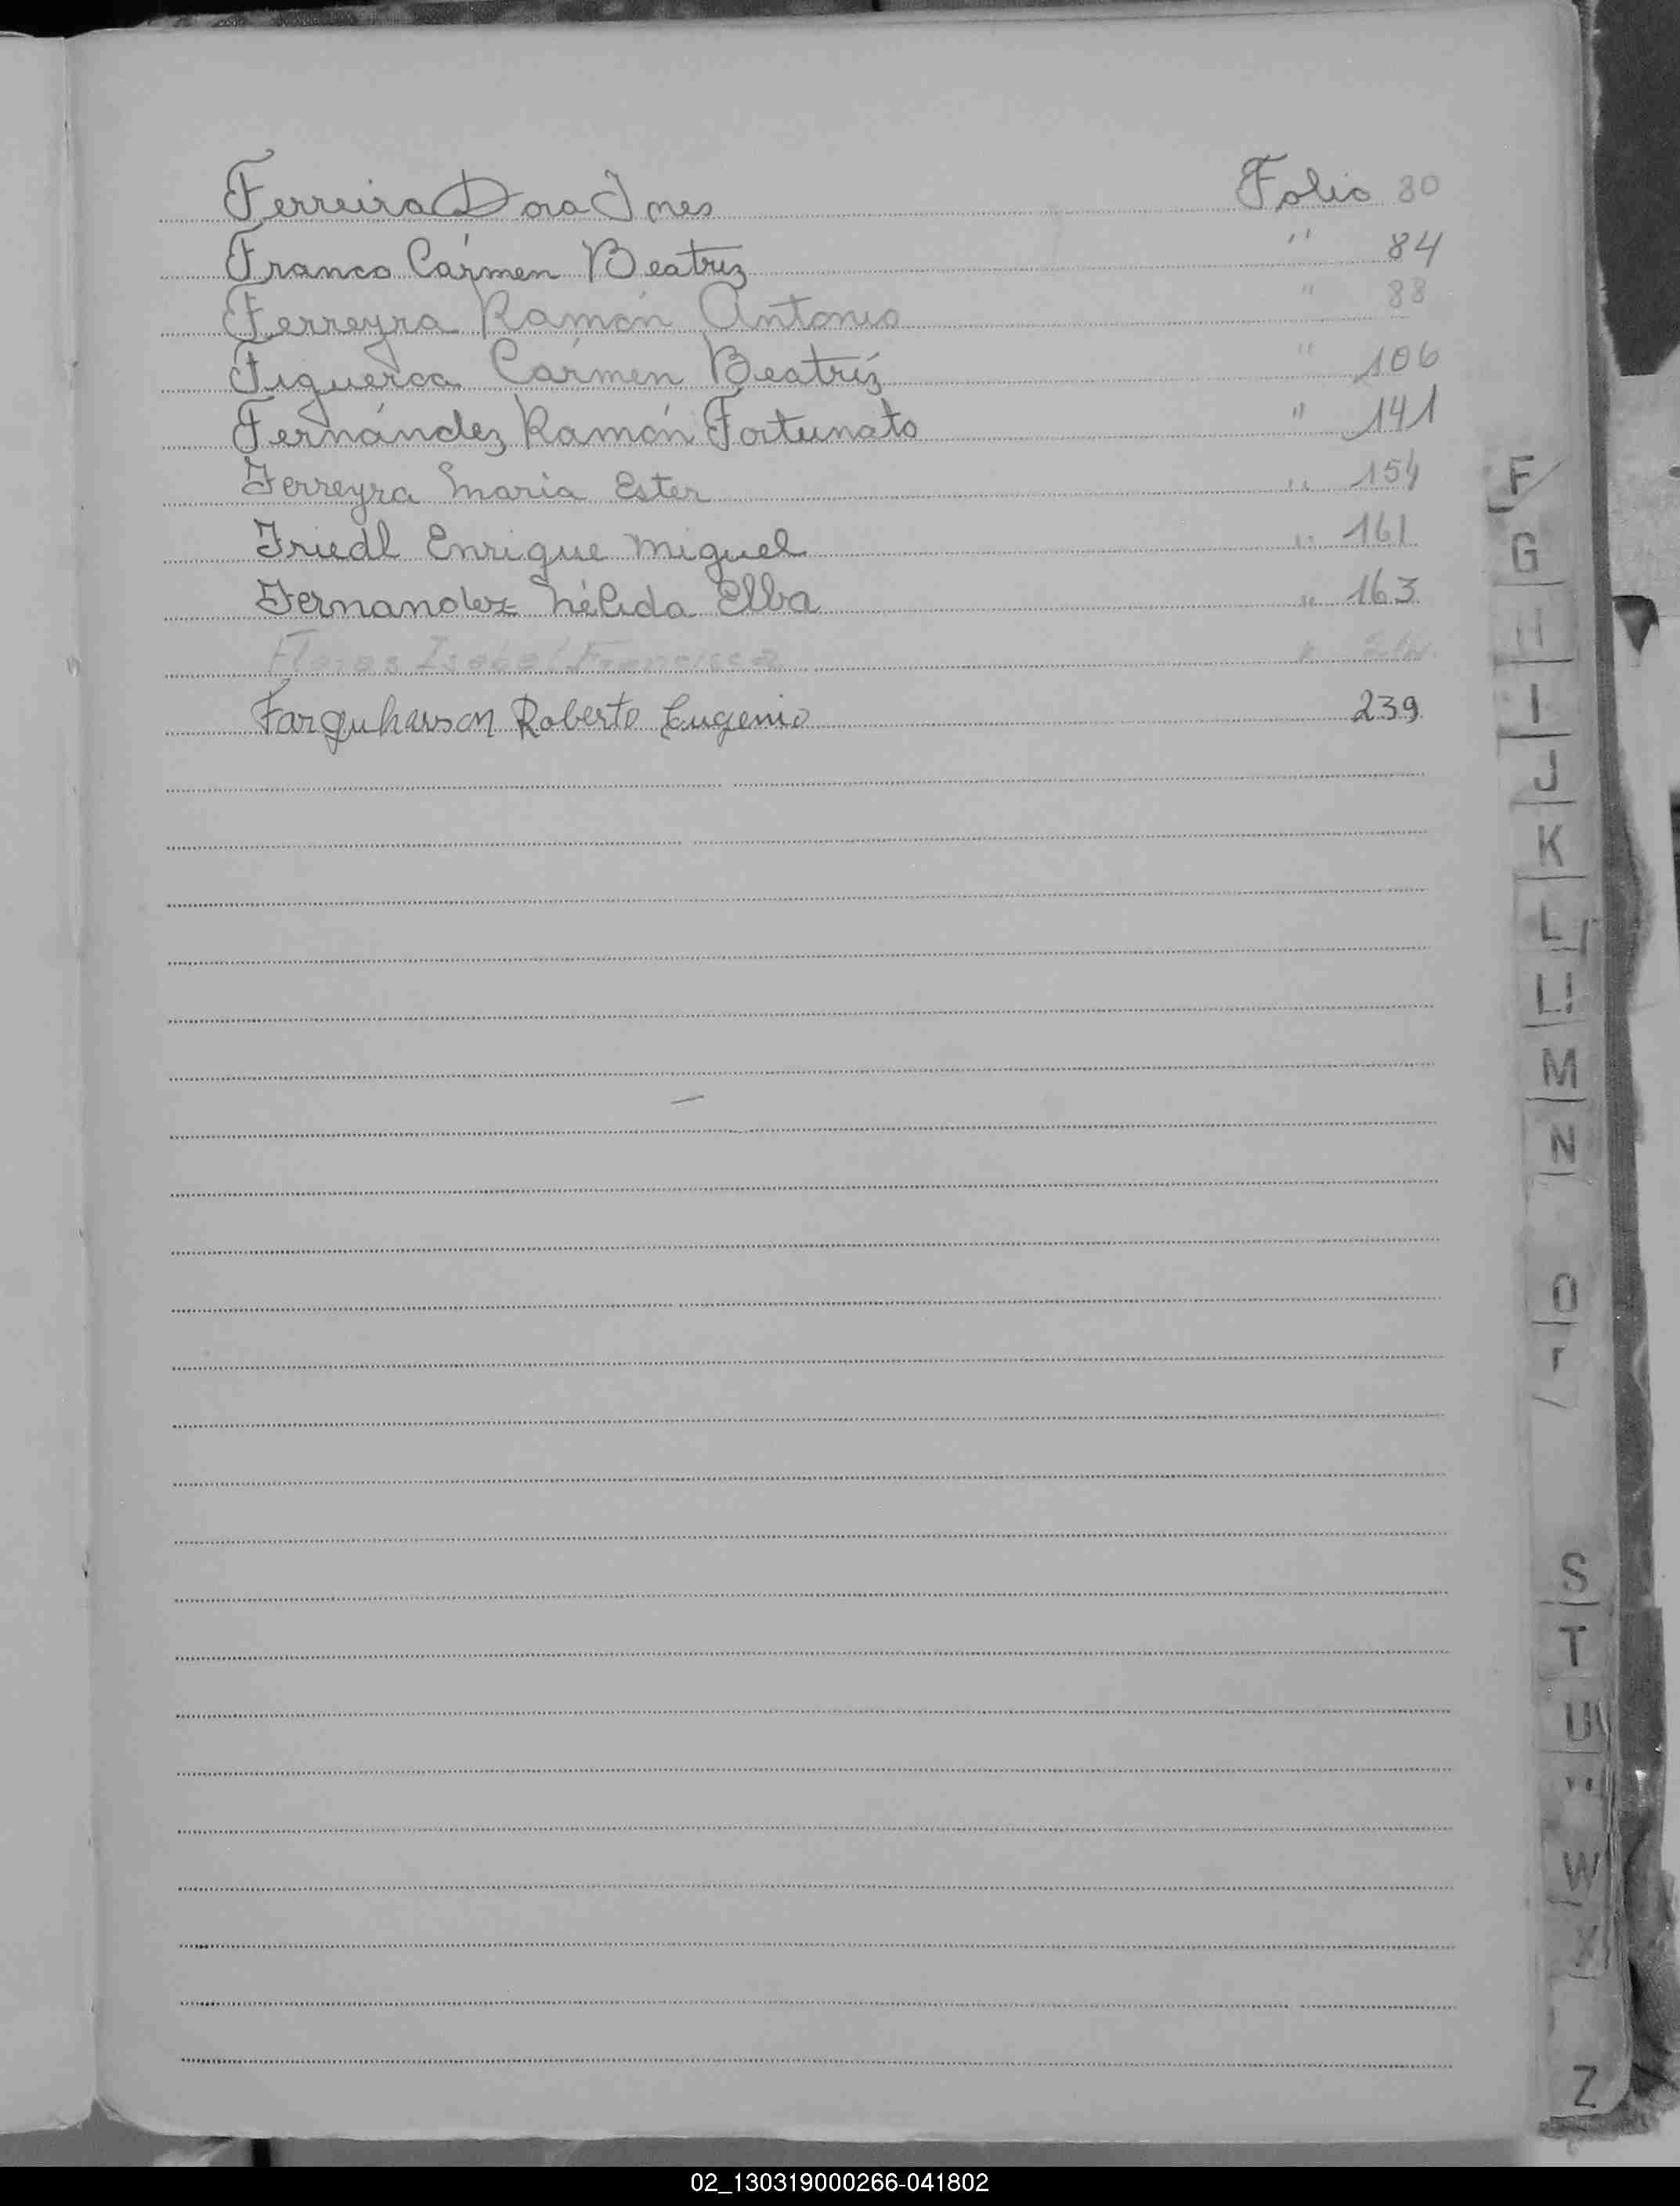 Ferreira Dora Ines Folio 80
Franco Cármen Beatriz " 84
Ferreyra Ramón Antonio " 88
Figueroa Cármen Beatríz " 106
Fernández Ramón Fortunato " 141
Ferreyra Maria Ester " 154
Friedl Enrique Miguel " 161
Fernandez Nélida Elba " 163
Flores Isabel Francisca "
Farquharson Roberto Eugenio 239
F
G
H
I
J
K
L
Ll
M
N
O
S
T
U
W
X
Z
02_130319000266-041802